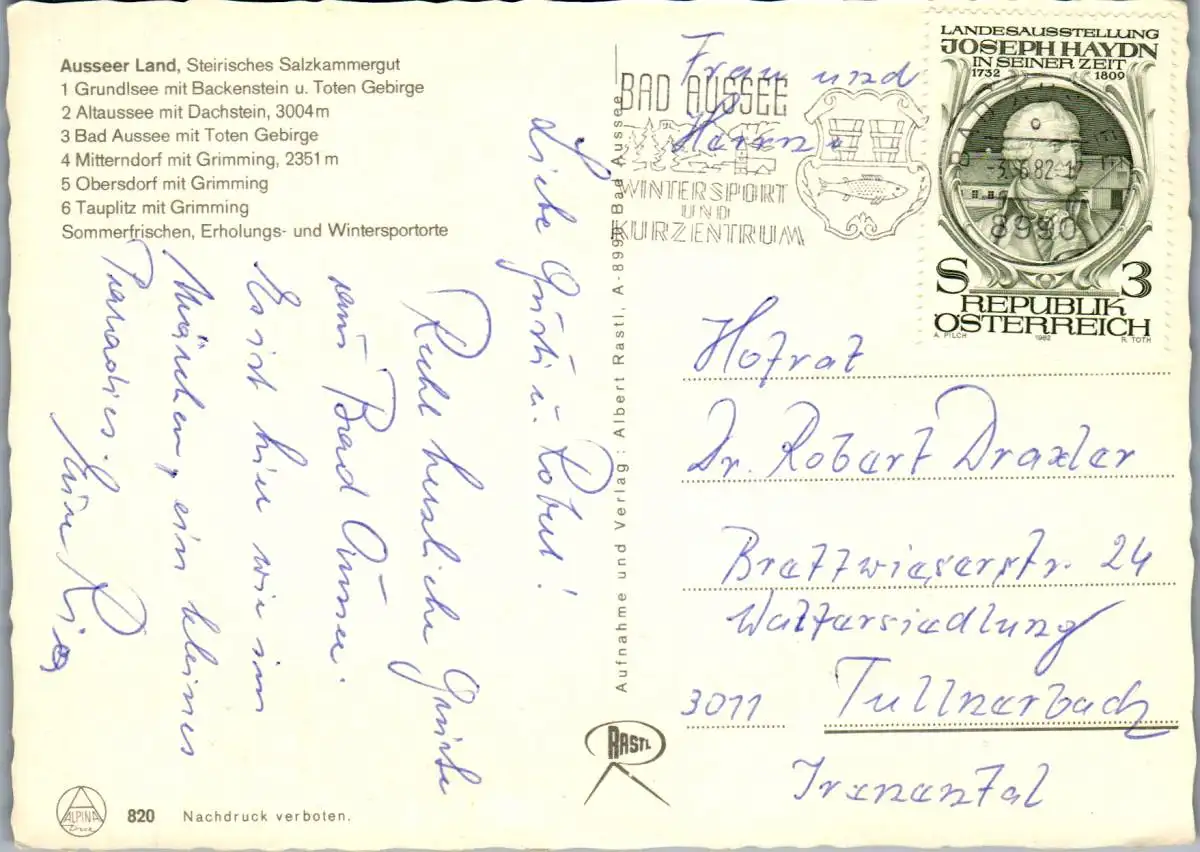 Ausseer Land, Steirisches Salzkammergut
1 Grundlsee mit Backenstein u. Toten Gebirge
2 Altaussee mit Dachstein, 3004 m
3 Bad Aussee mit Toten Gebirge
4 Mitterndorf mit Grimming, 2351 m
5 Obersdorf mit Grimming
6 Tauplitz mit Grimming
Sommerfrischen, Erholungs- und Wintersportorte
Liebe Gusti u. Robert!
Recht herzliche Grüsse
aus Bad Aussee.
Es ist hier wie im
Märchen, ein kleines
Paradies.
ALPINA
Druck
820 Nachdruck verboten.
Aufnahme und Verlag: Albert Rastl, A-8990 Bad Aussee
RASTL
BAD AUSSEE
WINTERSPORT
UND
KURZENTRUM
LANDESAUSSTELLUNG
JOSEPH HAYDN
IN SEINER ZEIT
1732 1809
-3.6.82-17
8990
S 3
REPUBLIK
ÖSTERREICH
A. PILCH 1982 R. TOTH
Frau und
Herrn
Hofrat
Dr. Robert Draxler
Brettwieserstr. 24
Walfersiedlung
3011 Tullnerbach
Irenental